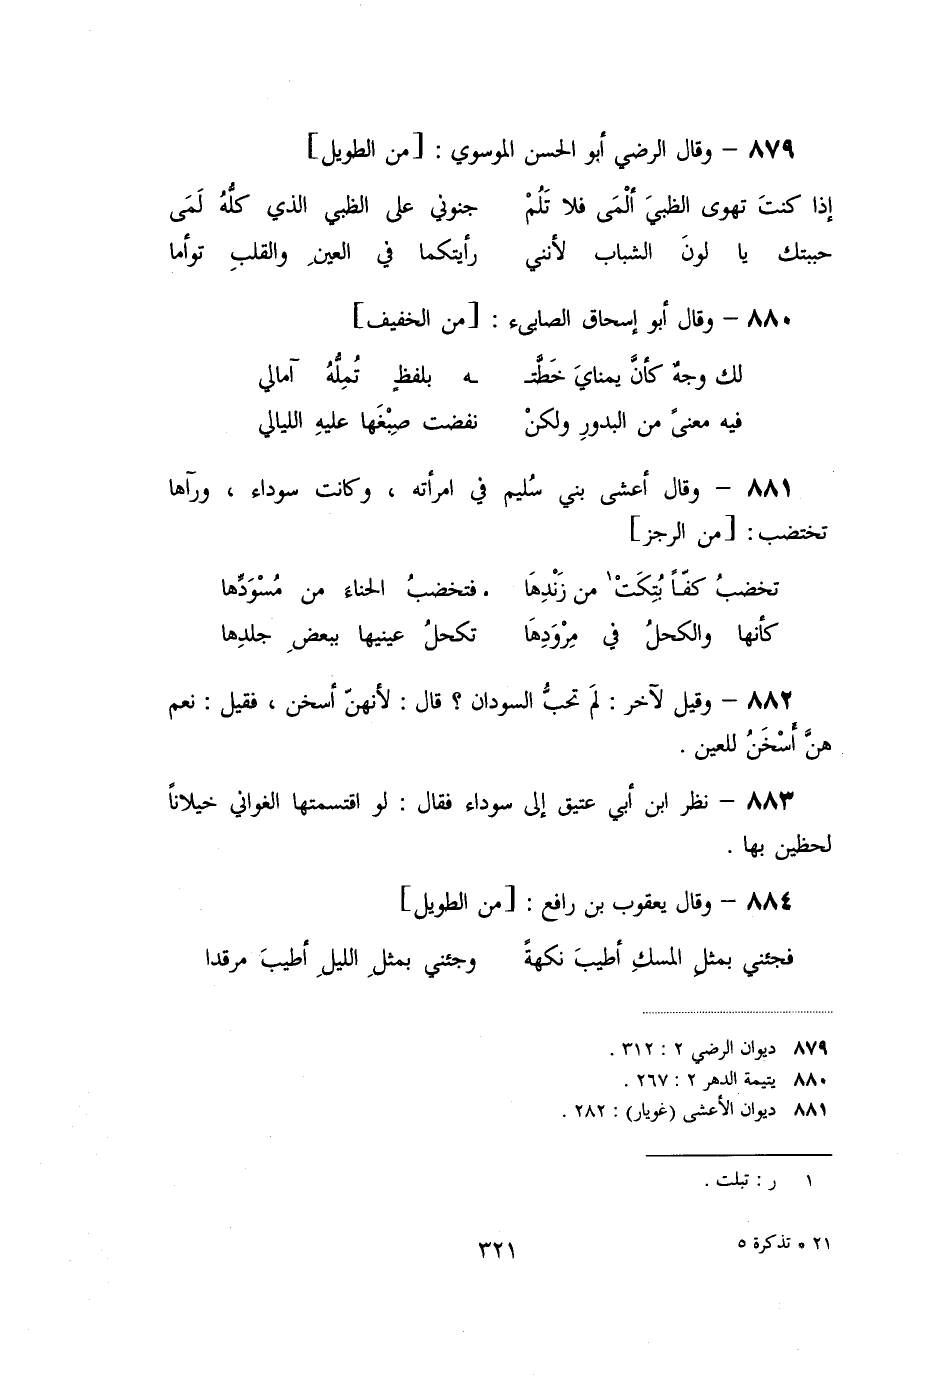 ٨٧٩ – وقال الرضي أبو الحسن الموسوي : [من الطويل]
إذا كنتَ تهوى الظبيَ ألْمَى فلا تَلُمْ جنوني على الظبي الذي كلُّهُ لَمَى
حببتك يا لونَ الشباب لأنني رأيتكما في العينِ والقلبِ توأما
٨٨٠ – وقال أبو إسحاق الصابىء : [من الخفيف]
لك وجهٌ كأنَّ يمنايَ خَطَّتـ ـه بلفظٍ تُمِلُّهُ آمالي
فيه معنىً من البدورِ ولكنْ نفضت صِبْغَها عليهِ الليالي
٨٨١ – وقال أعشى بني سُليم في امرأته ، وكانت سوداء ، ورآها
تختضب : [من الرجز]
تخضبُ كفّاً بُتِكَتْ١ من زَنْدِهَا . فتخضبُ الحناءَ من مُسْوَدِّها
كأنها والكحلُ في مِرْوَدِهَا تكحلُ عينيها ببعضِ جلدِها
٨٨٢ – وقيل لآخر : لمَ تحبُّ السودان ؟ قال : لأنهنّ أسخن ، فقيل : نعم
هنَّ أَسْخَنُ للعين .
٨٨٣ – نظر ابن أبي عتيق إلى سوداء فقال : لو اقتسمتها الغواني خيلاناً
لحظين بها .
٨٨٤ – وقال يعقوب بن رافع : [من الطويل]
فجئني بمثلِ المسكِ أطيبَ نكهةً وجئني بمثلِ الليلِ أطيبَ مرقدا
٨٧٩ ديوان الرضي ٢ : ٣١٢ .
٨٨٠ يتيمة الدهر ٢ : ٢٦٧ .
٨٨١ ديوان الأعشى (غويار) : ٢٨٢ .
١ ر : تبلت .
٢١ * تذكرة ٥
٣٢١